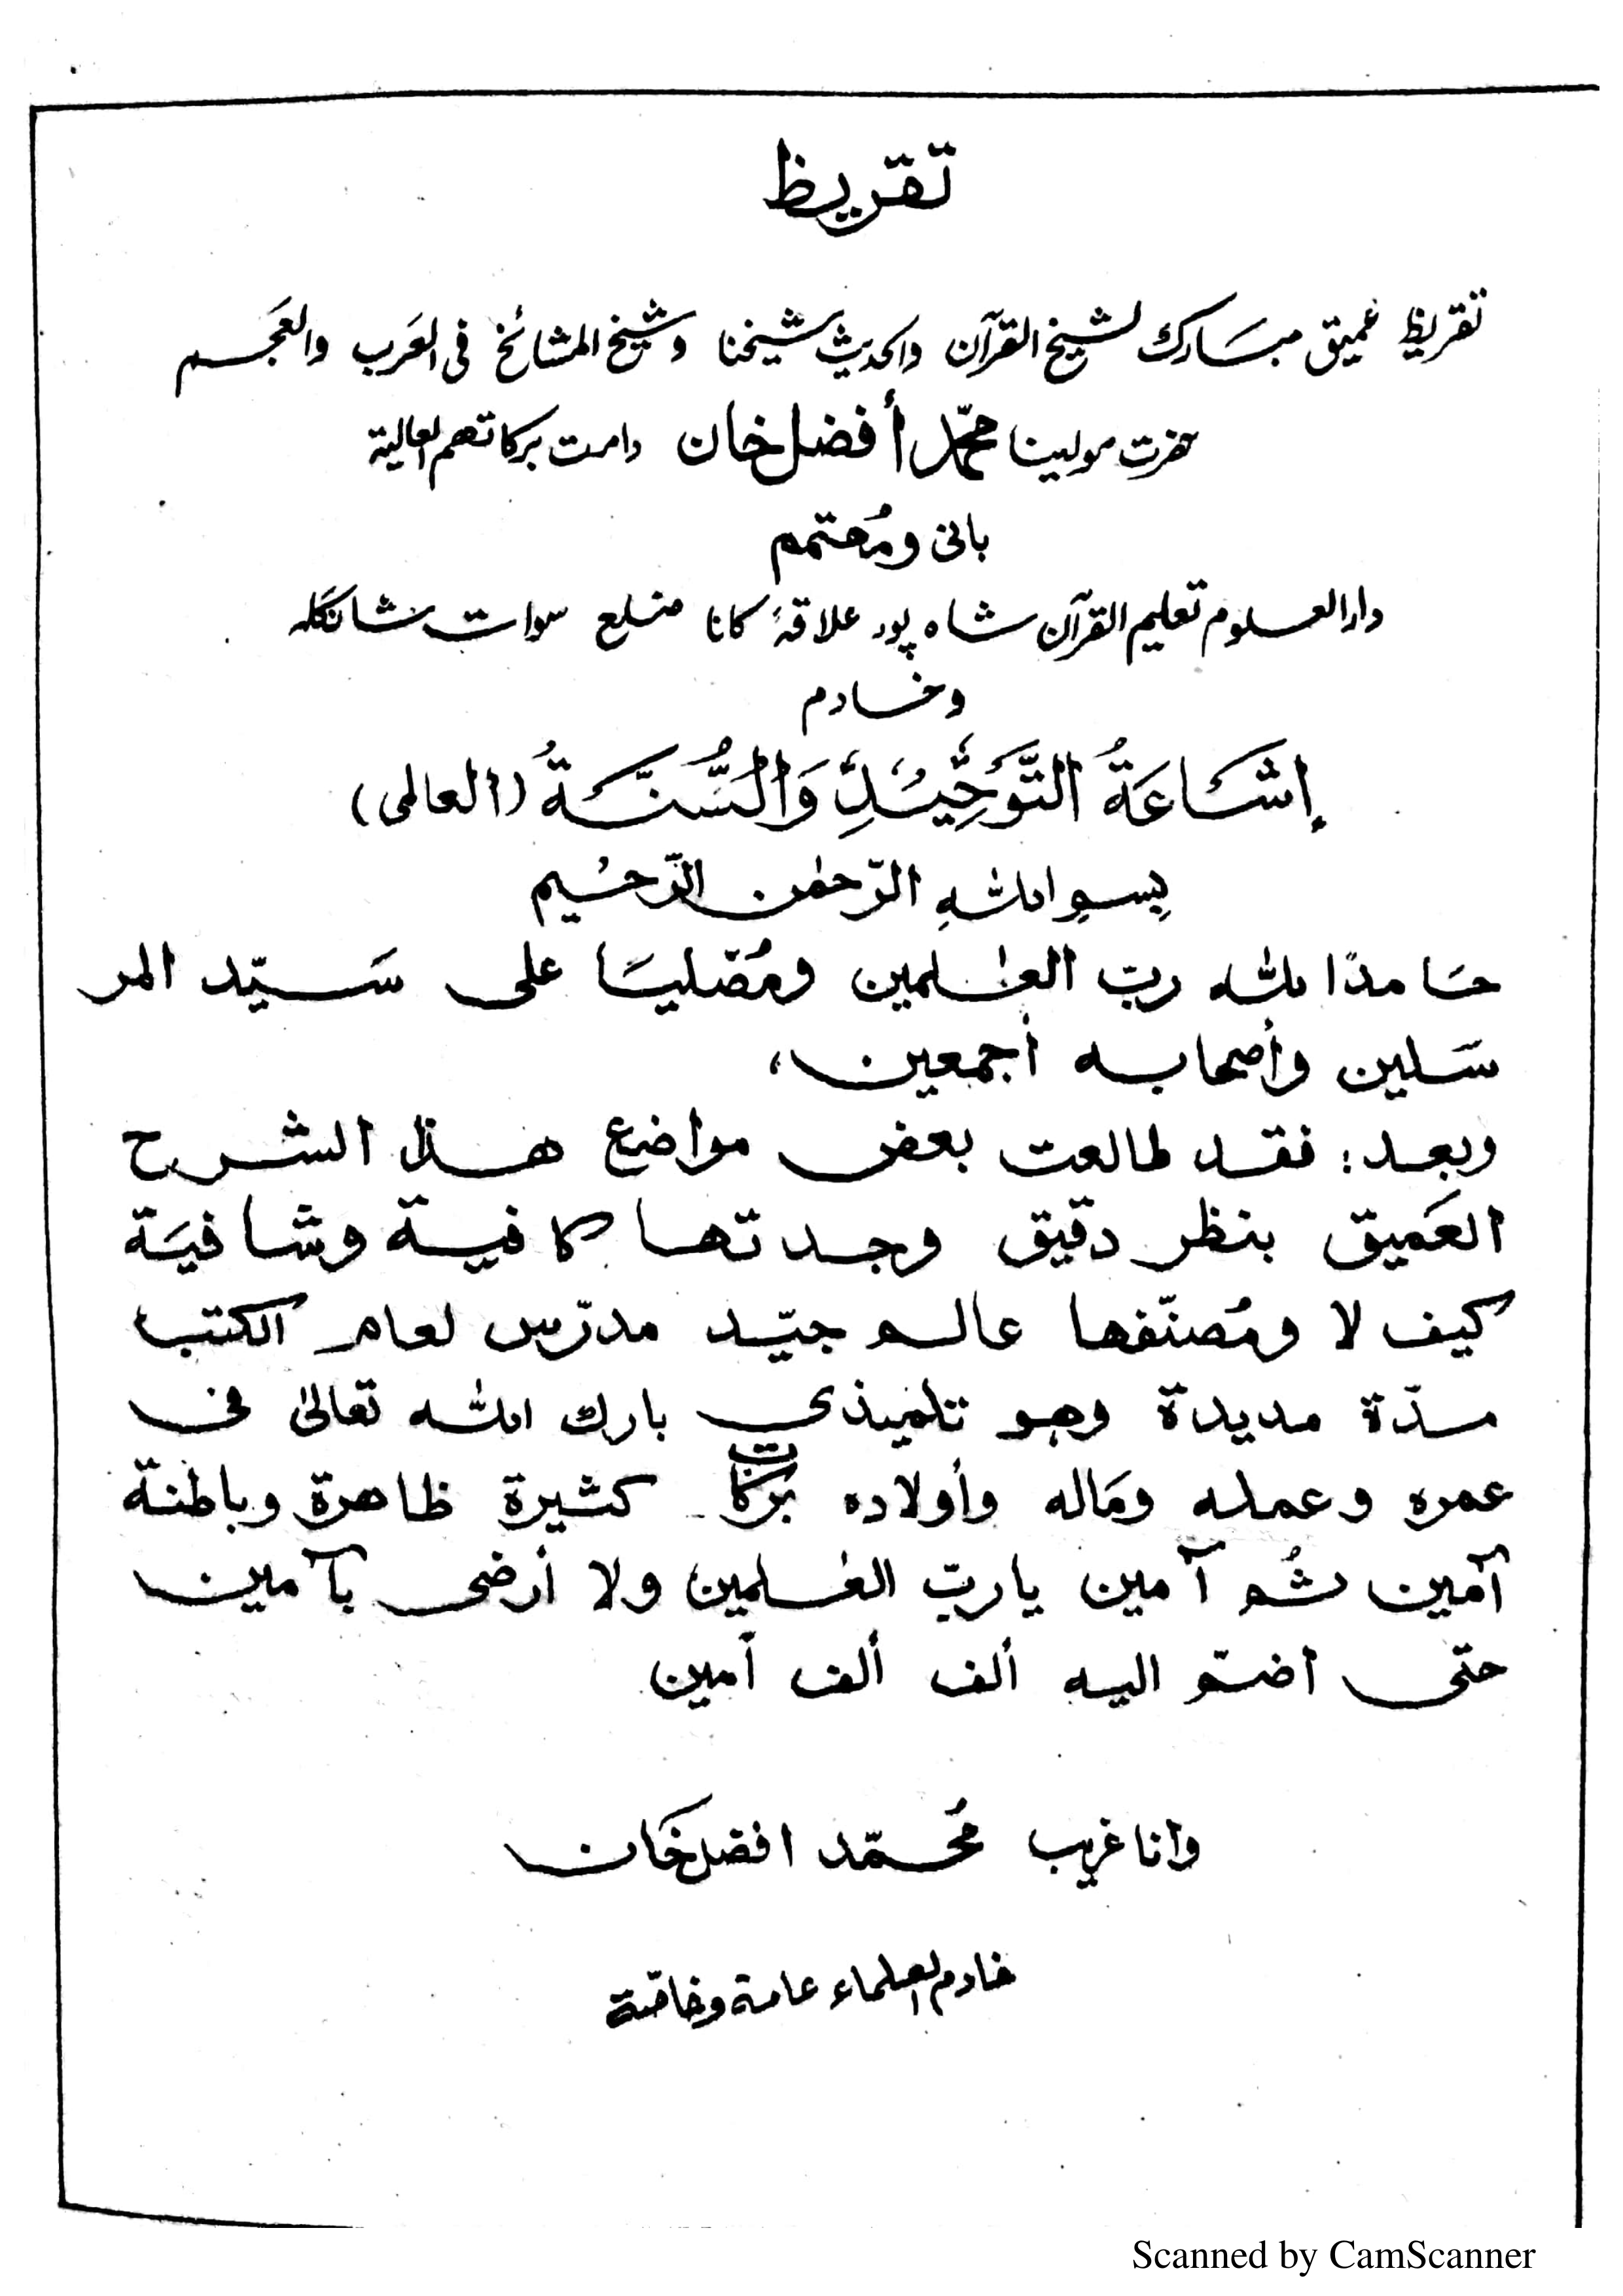 تقريظ
تقريظ عميق مبَارك لشيخ القرآن والحديث شيخنا وشيخ المشائخ فى العَرب والعَجَم
حضرت مولينا محمّد أفضل خان دامت بركاتهم العالية
بانى ومُهتمم
دار العلوم تعليم القرآن شاه پور علاقۂ کانا ضلع سوات شانگله
وخادم
إشَاعَةُ التَّوحِيْدِ وَالسُّنَّةُ (العالمى)
بِسمِ اللهِ الرّحمٰن الرّحيْم
حَامدًا لله ربّ العٰلمين ومُصَليًا على سَيّد المر
سَلين وأصحابه أجمعين،
وبعد: فقد طالعت بعض مواضع هذا الشرح
العَميق بنظر دقيق وجدتها كافية وشافيَة
كيف لا ومُصنّفها عالم جيّد مدرّس لعام الكتب
مدّة مديدة وهو تلميذى بارك الله تعالىٰ فى
عمره وعمله ومَاله وأولاده بَركات كثيرة ظاهرة وباطنة
آمين ثُم آمين يا ربّ العٰلمين ولا أرضى بآمين
حتى اضمّ اليه ألف ألف آمين
وانا غريب مُحمّد افضل خَان
خادم العلماء عامة وخاصّة
Scanned by CamScanner